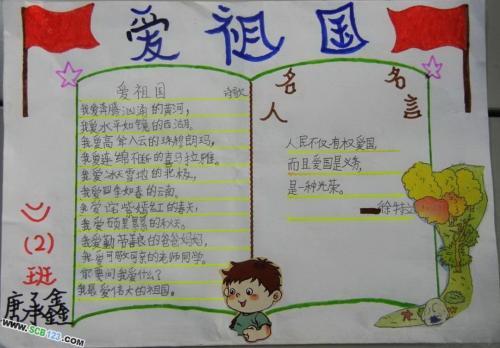 爱祖国
爱祖国 诗歌
我爱奔腾汹涌的黄河，
我爱水平如镜的西湖。
我爱高耸入云的珠穆朗玛，
我爱连绵不断的喜马拉雅。
我爱冰天雪地的北极，
我爱四季如春的云南。
我爱姹紫嫣红的春天，
我爱硕果累累的秋天。
我爱勤劳善良的爸爸妈妈，
我爱可歌可亲的老师同学。
你要问我爱什么？
我最爱伟大的祖国。
名人名言
人民不仅有权爱国，
而且爱国是义务，
是一种光荣。
——徐特立
二(2)班
唐承鑫
www.SCB123.com